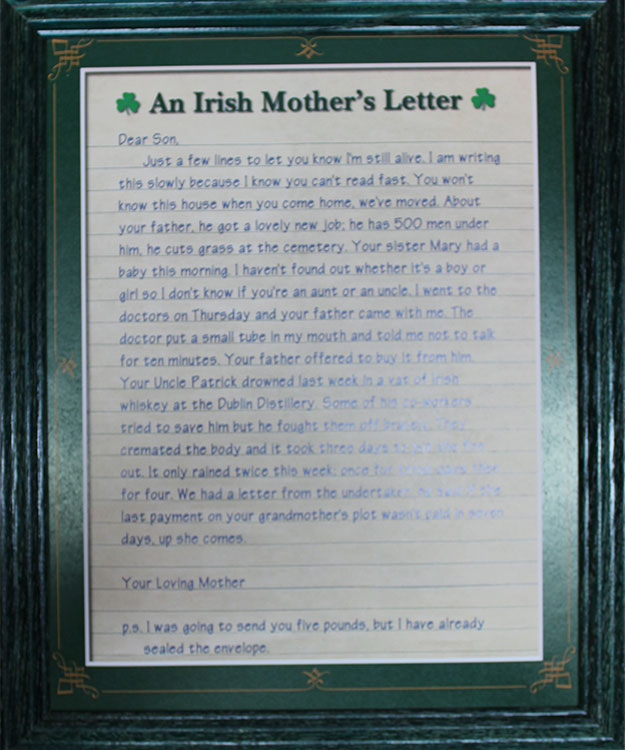 An Irish Mother's Letter
Dear Son,
Just a few lines to let you know I'm still alive. I am writing
this slowly because I know you can't read fast. You won't
know this house when you come home, we've moved. About
your father, he got a lovely new job; he has 500 men under
him, he cuts grass at the cemetery. Your sister Mary had a
baby this morning. I haven't found out whether it's a boy or
girl so I don't know if you're an aunt or an uncle. I went to the
doctors on Thursday and your father came with me. The
doctor put a small tube in my mouth and told me not to talk
for ten minutes. Your father offered to buy it from him.
Your Uncle Patrick drowned last week in a vat of Irish
whiskey at the Dublin Distillery. Some of his co-workers
tried to save him but he fought them off bravely. They
cremated the body and it took three days to
out. It only rained twice this week; once for
for four. We had a letter from the undertaker,
last payment on your grandmother's plot wasn't paid in seven
days, up she comes.
Your Loving Mother
p.s. I was going to send you five pounds, but I have already
sealed the envelope.